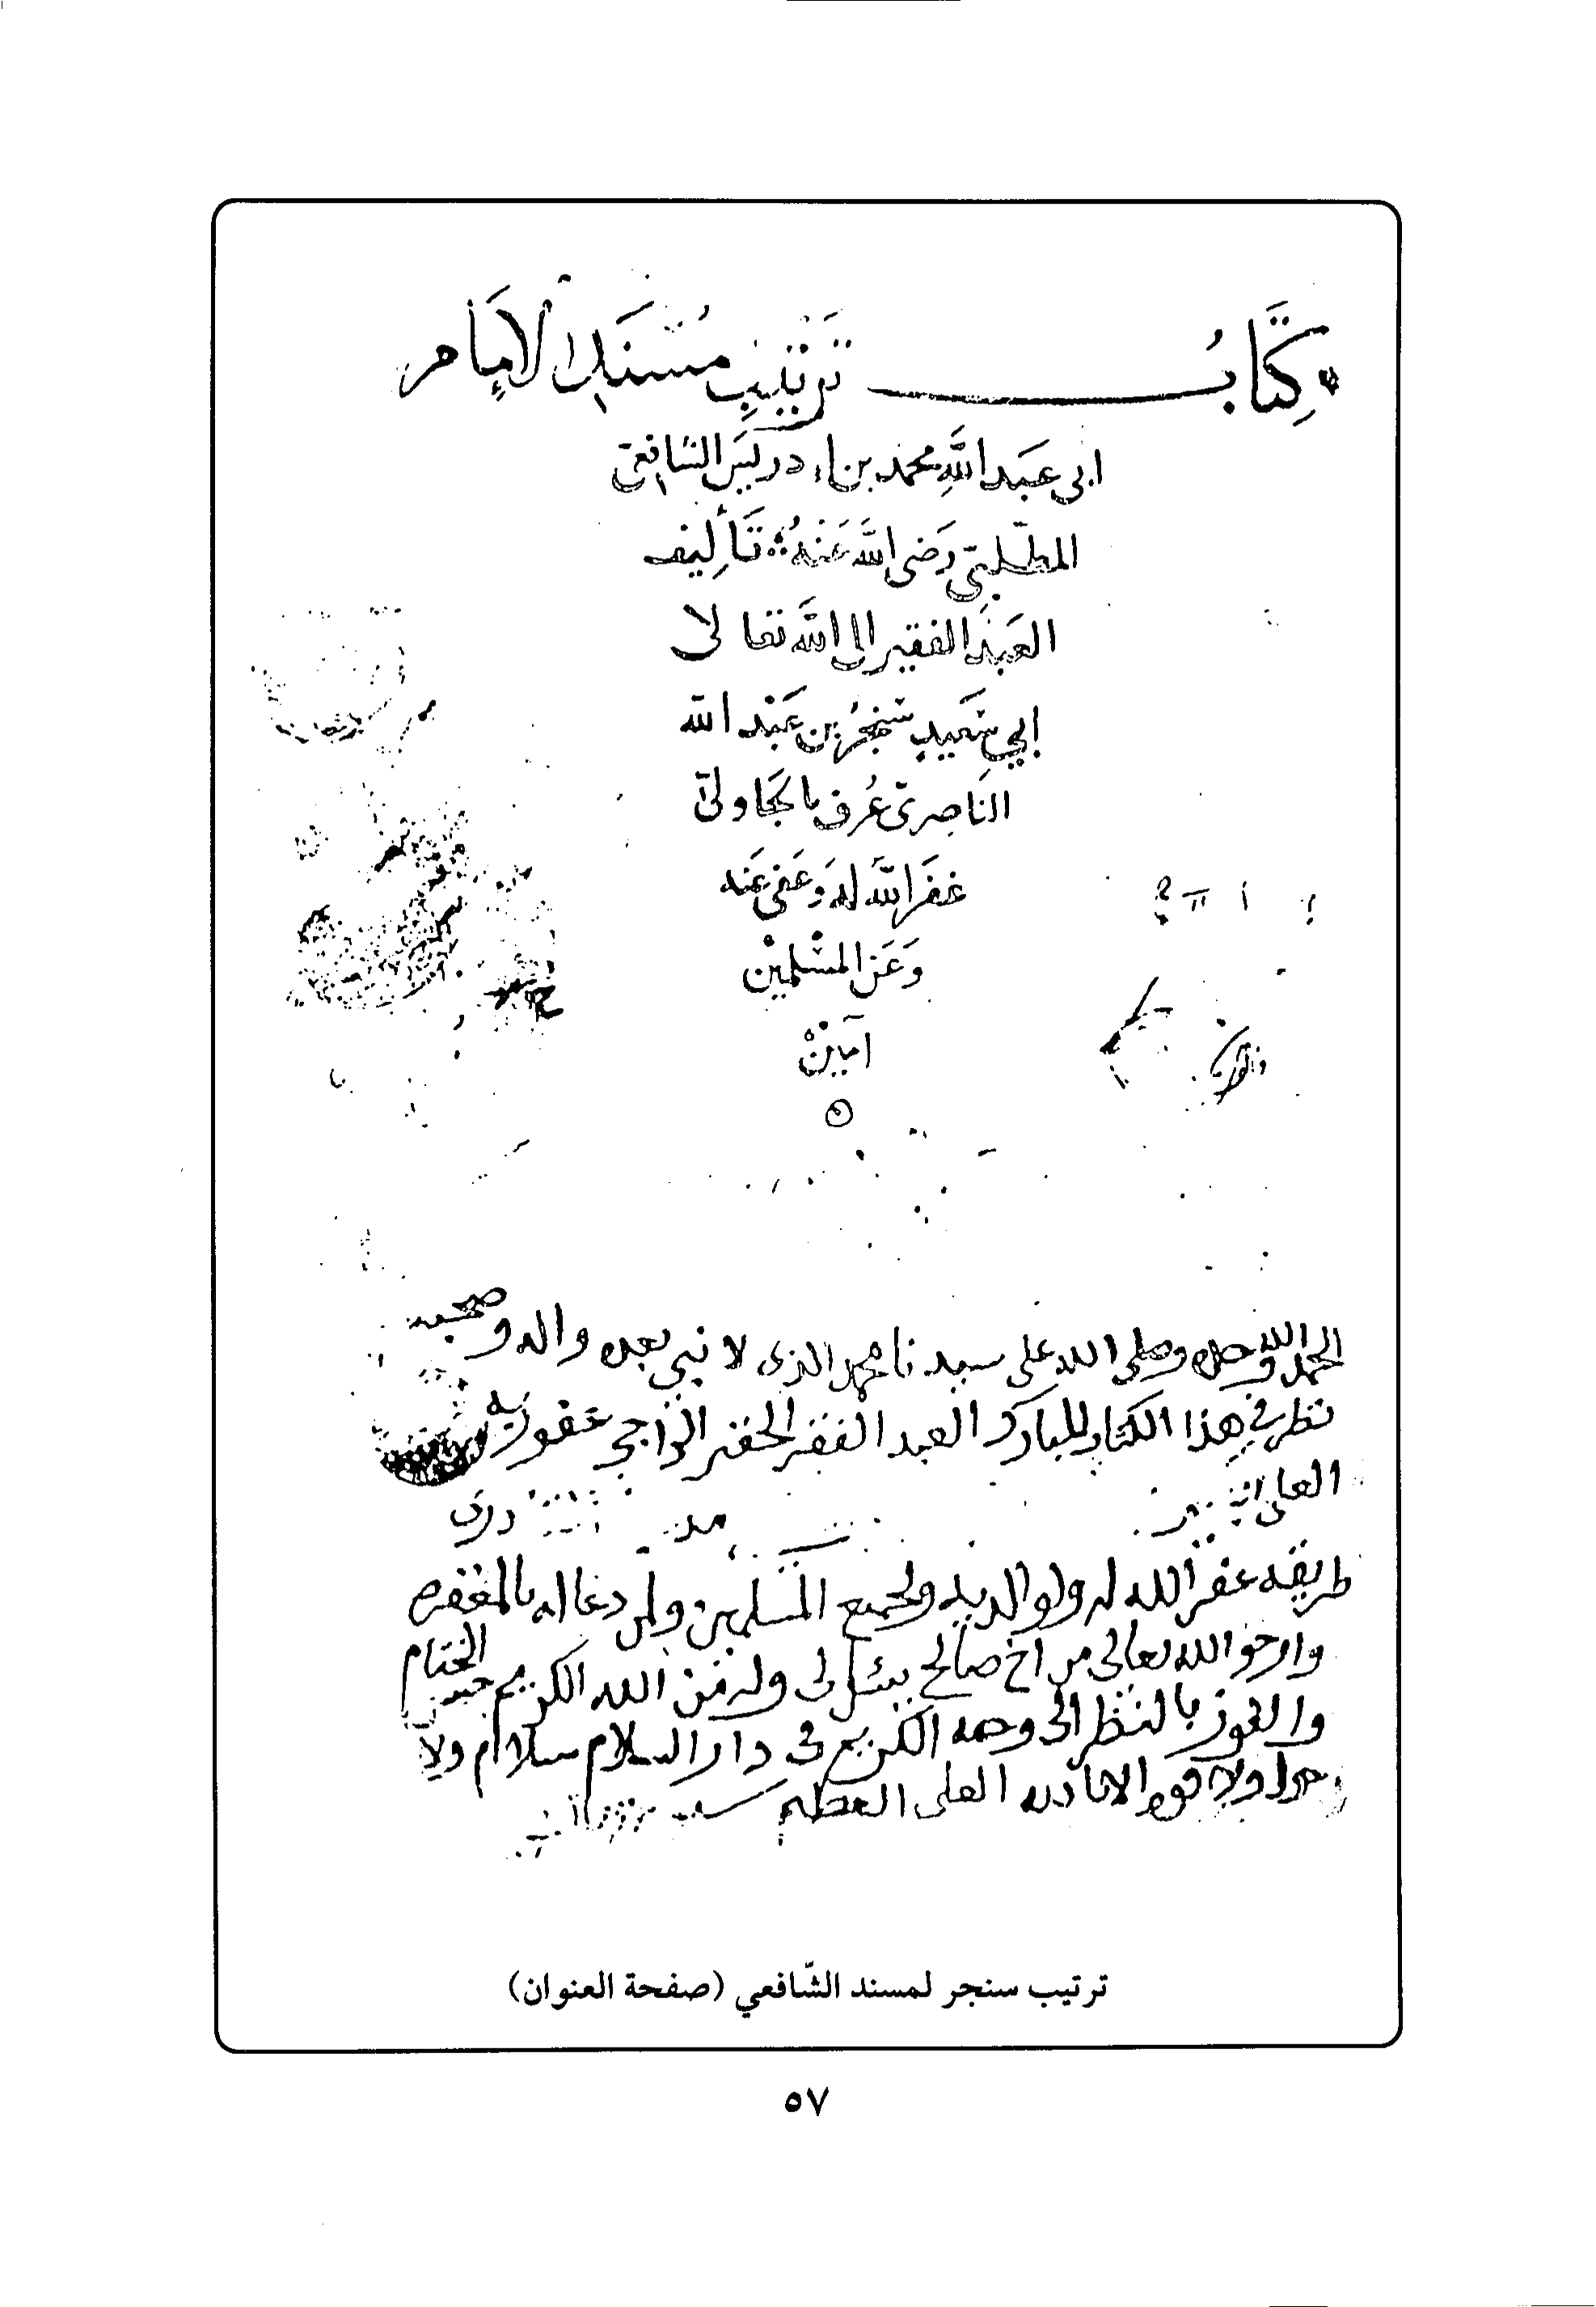 كِتَابُ تَرتيبِ مُسْنَدِ الإمَام
ابى عَبد اللَّهِ محمد بن ادريسَ الشافعى
المطلبى رَضى اللَّه عَنْهُ تَأليف
العَبْد الفقير الى اللَّه تعالى
ابي سَعيدٍ سَنجَر بن عَبْد الله
النَاصِرى عُرف بالجَاولى
غفَر اللَّه لهُ وَعَفى عَنه
وَعَن المسْلمين
آمين
الحمد لله وحده وصلى الله على سيدنا محمد الذى لا نبي بعده واله وصحبه
نظر في هذا الكتاب المبارك العبد الفقير الحقير الراجي عفو ربه
العلى
طريقه غفر الله له ولوالديه ولجميع المسلمين ولمن دعا له بالمغفره
وارجو الله تعالى من اخ صالح يسئل لى وله من الله الكريم حسن الختام
والفوز بالنظر الى وجهه الكريم فى دار السلام سلام ولا
حول ولا قوه الا بالله العلى العظيم
ترتيب سنجر لمسند الشّافعي (صفحة العنوان)
٥٧